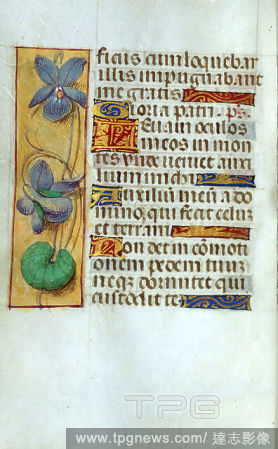 ficus cum loquebar
illis impugnabant
me gratis
Gloria patri. ps.
Levavi oculos
meos in mon
tes unde veniet auxi
lium michi
Auxilium meū a do
mino, qui fecit celum
et terram
Non det in cōmoti
onem pedem tuum
neqz dormitet qui
custodit te
TPG
www.tpgnews.com/達志影像